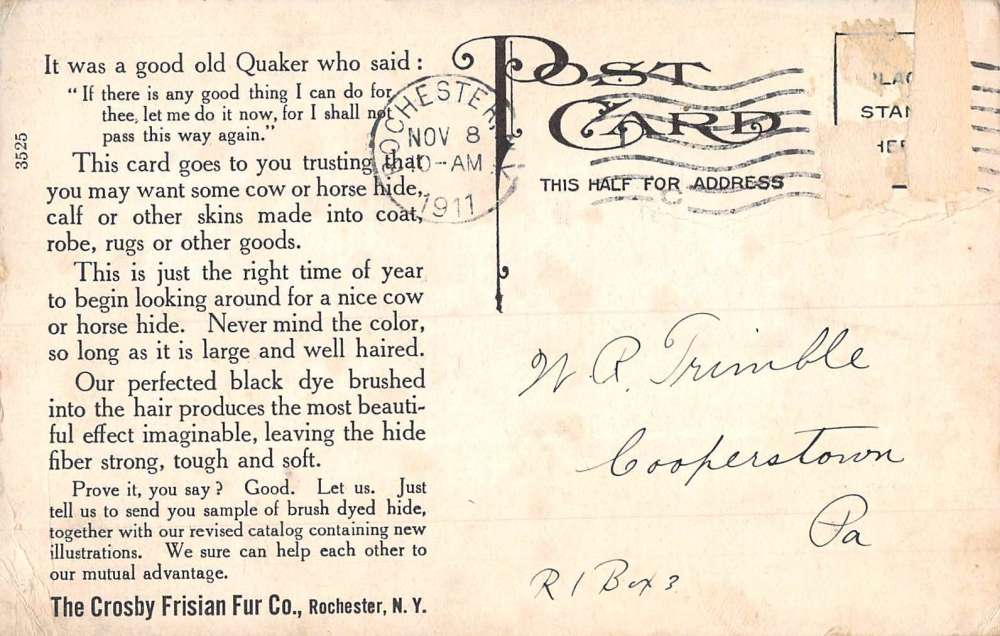 It was a good old Quaker who said :
"If there is any good thing I can do for
thee, let me do it now, for I shall not
pass this way again."
This card goes to you trusting that
you may want some cow or horse hide,
calf or other skins made into coat,
robe, rugs or other goods.
This is just the right time of year
to begin looking around for a nice cow
or horse hide. Never mind the color,
so long as it is large and well haired.
Our perfected black dye brushed
into the hair produces the most beauti-
ful effect imaginable, leaving the hide
fiber strong, tough and soft.
Prove it, you say? Good. Let us. Just
tell us to send you sample of brush dyed hide,
together with our revised catalog containing new
illustrations. We sure can help each other to
our mutual advantage.
The Crosby Frisian Fur Co., Rochester, N. Y.
3525
ROCHESTER, N.Y.
NOV 8
10-AM
1911
POST
CARD
THIS HALF FOR ADDRESS
PLAC
STAM
HER
W R. Trimble
Cooperstown
Pa
R 1 Box 3